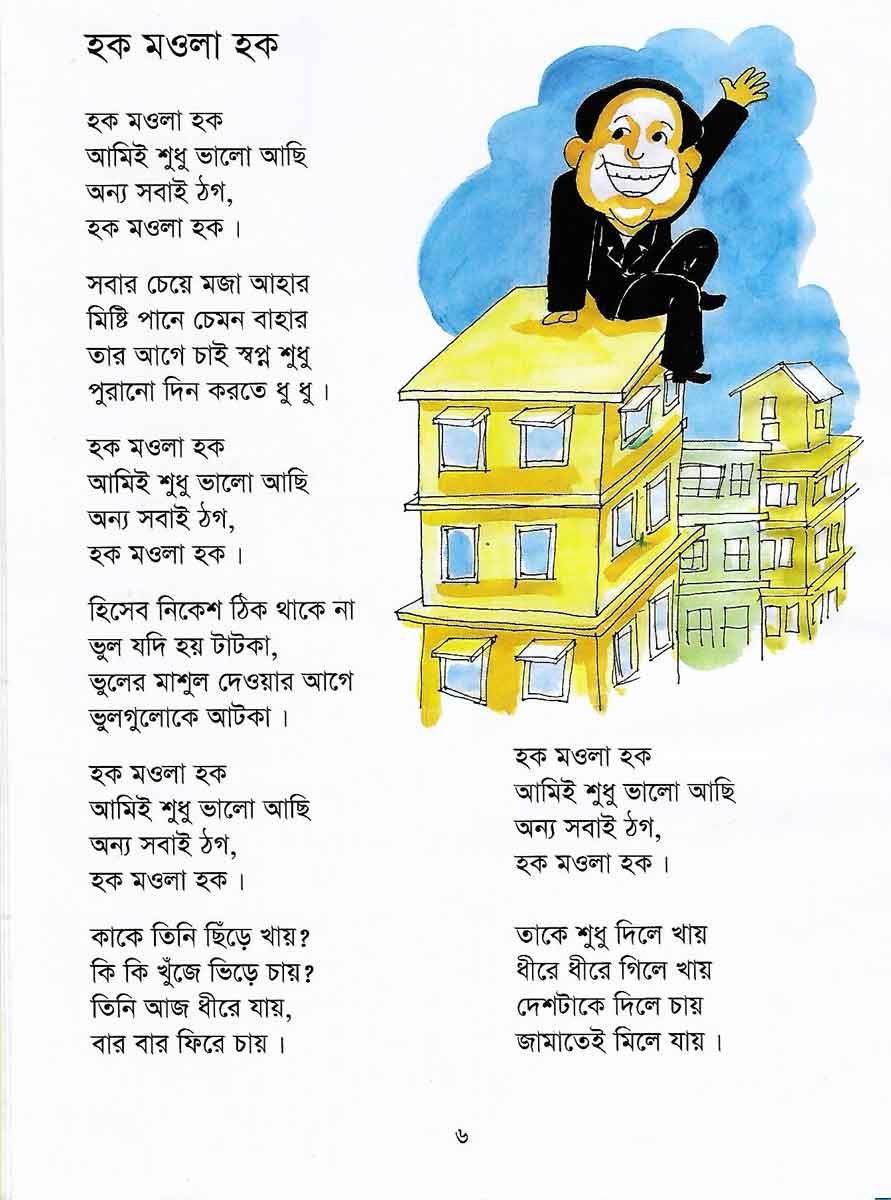 হক মওলা হক
হক মওলা হক
আমিই শুধু ভালো আছি
অন্য সবাই ঠগ,
হক মওলা হক ।
সবার চেয়ে মজা আহার
মিষ্টি পানে চেমন বাহার
তার আগে চাই স্বপ্ন শুধু
পুরানো দিন করতে ধু ধু ।
হক মওলা হক
আমিই শুধু ভালো আছি
অন্য সবাই ঠগ,
হক মওলা হক ।
হিসেব নিকেশ ঠিক থাকে না
ভুল যদি হয় টাটকা,
ভুলের মাশুল দেওয়ার আগে
ভুলগুলোকে আটকা ।
হক মওলা হক
আমিই শুধু ভালো আছি
অন্য সবাই ঠগ,
হক মওলা হক ।
কাকে তিনি ছিঁড়ে খায়?
কি কি খুঁজে ভিড়ে চায়?
তিনি আজ ধীরে যায়,
বার বার ফিরে চায় ।
হক মওলা হক
আমিই শুধু ভালো আছি
অন্য সবাই ঠগ,
হক মওলা হক ।
তাকে শুধু দিলে খায়
ধীরে ধীরে গিলে খায়
দেশটাকে দিলে চায়
জামাতেই মিলে যায় ।
৬